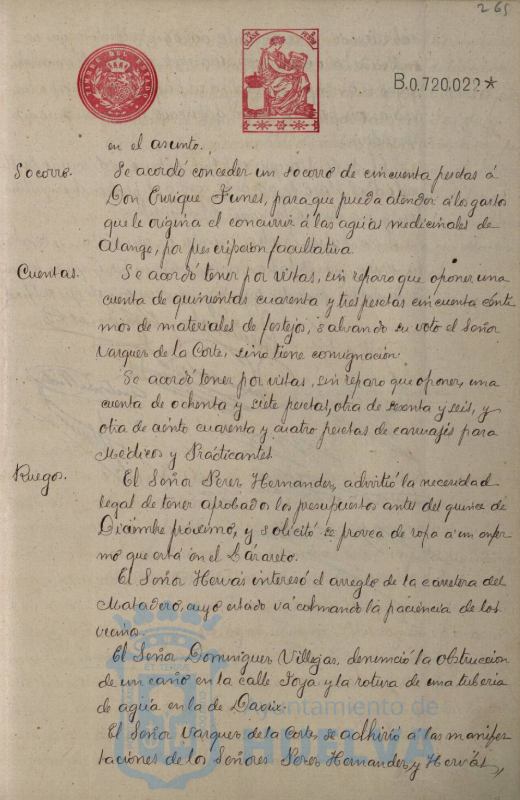 265
TIMBRE DEL ESTADO
B.0.720,022*
en el asunto.
Socorro. Se acordó conceder un socorro de cincuenta pesetas á
Don Enrique Funes, para que pueda atender á los gastos
que le origina el concurrir á las aguas medicinales de
Alange, por prescripcion facultativa.
Cuentas. Se acordó tener por vistas, sin reparo que oponer una
cuenta de quinientas cuarenta y tres pesetas cincuenta cénti
mos de materiales de festejos, salvando su voto el Señor
Vazquez de la Corte, sino tiene consignacion.
Se acordó tener por vistas, sin reparo que oponer, una
cuenta de ochenta y siete pesetas, otra de sesenta y seis, y
otra de ciento cuarenta y cuatro pesetas de carruajes para
Médicos y Prácticantes
Ruegos. El Señor Perez Hernandez, advirtió la necesidad
legal de tener aprobados los presupuestos antes del quince de
Diciembre próximo, y solicitó se provea de ropa á un enfer
mo que está en el Lázareto.
El Señor Hervás interesó el arreglo de la carretera del
Matadero, cuyo estado vá colmando la paciencia de los
vecinos.
El Señor Dominguez Villegas, denunció la obstruccion
de un caño en la calle Joya y la rotura de una tuberia
de agua en la de Daoiz.
El Señor Vazquez de la Corte, se adhirió á las manifes
taciones de los Señores Perez Hernandez y Hervás,
Ayuntamiento de
HUELVA